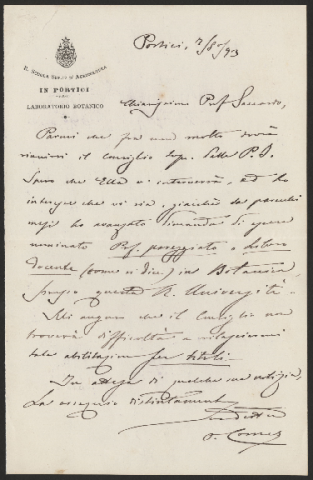 R. Scuola Super. d'Agricoltura
IN PORTICI
LABORATORIO BOTANICO
Portici, 2/8/93
Chiarissimo Prof. Saccardo,
Parmi che fra non molto dovrà
riunirsi il Consiglio Sup. della P. I.
Spero che Ella v'interverrà, ed ho
interesse che vi sia, giacchè da parecchi
mesi ho avanzato dimanda di essere
nominato Prof. pareggiato o libero
docente (come si dice) in Botanica
presso questa R. Università.
Mi auguro che il Consiglio non
troverà difficoltà a rilasciarmi
tale abilitazione per titoli.
In attesa di qualche sua notizia,
La ossequio distintamente
O. Comes